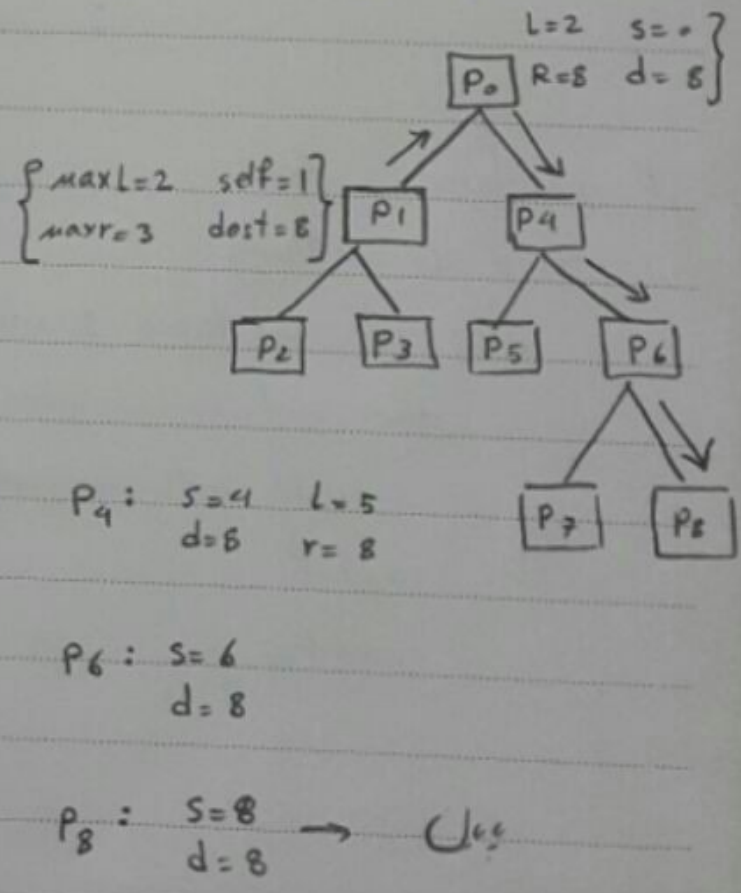 L=2 s=0
P0 R=8 d=8
maxl=2 self=1
maxr=3 dest=8
P1 P4
P2 P3 P5 P6
P4: s=4 l=5
d=8 r=8
P7 P8
P6: s=6
d=8
P8: s=8 →
d=8